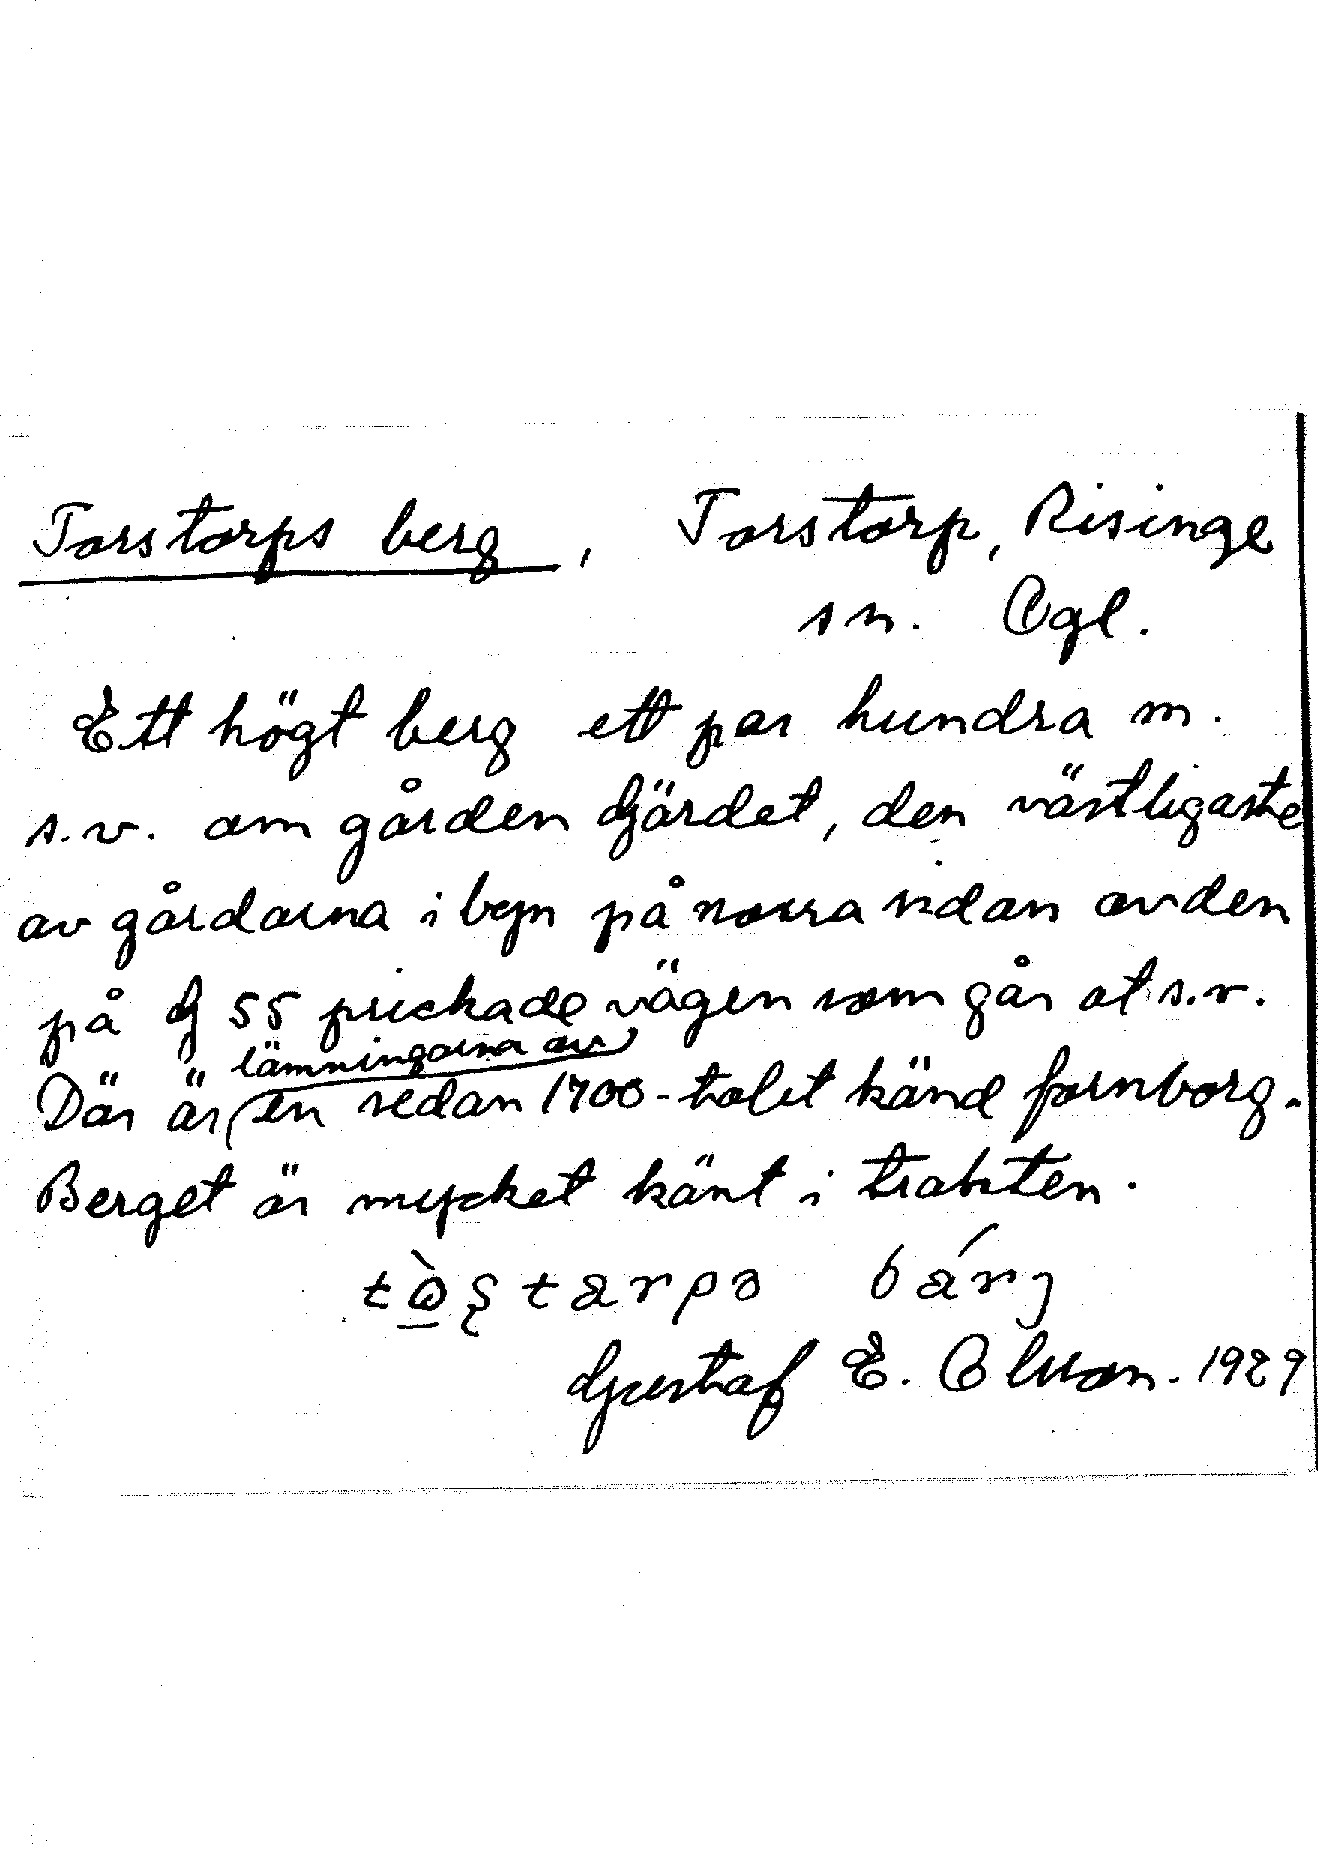 Torstorps berg, Torstorp, Risinge
sn. Ögl.
Ett högt berg ett par hundra m.
s.v. om gården Gärdet, den västligaste
av gårdarna i byn på norra sidan av den
på G 55 prickade vägen som går åt s.v.
Där är lämningarna av en sedan 1700-talet känd fornborg.
Berget är mycket känt i trakten.
Gustaf E. Olsson. 1929